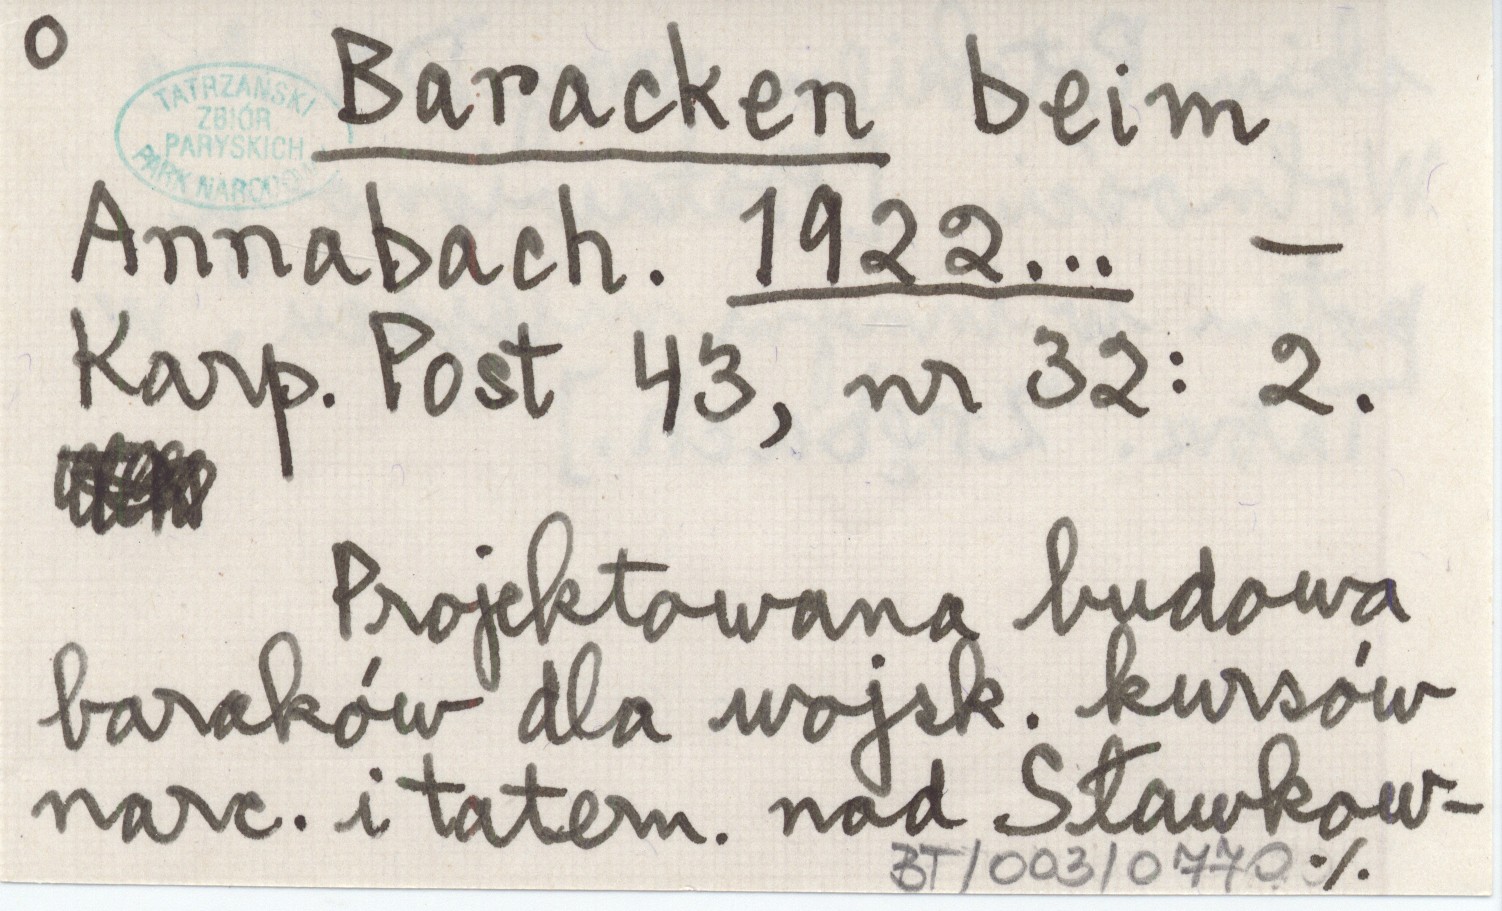 O
TATRZAŃSKI
ZBIÓR
PARYSKICH
PARK NARODOWY
Baracken beim
Annabach. 1922... —
Karp. Post 43, nr 32: 2.
Projektowana budowa
baraków dla wojsk. kursów
narc. i tatern. nad Sławkow-
BT/003/0770 ./.